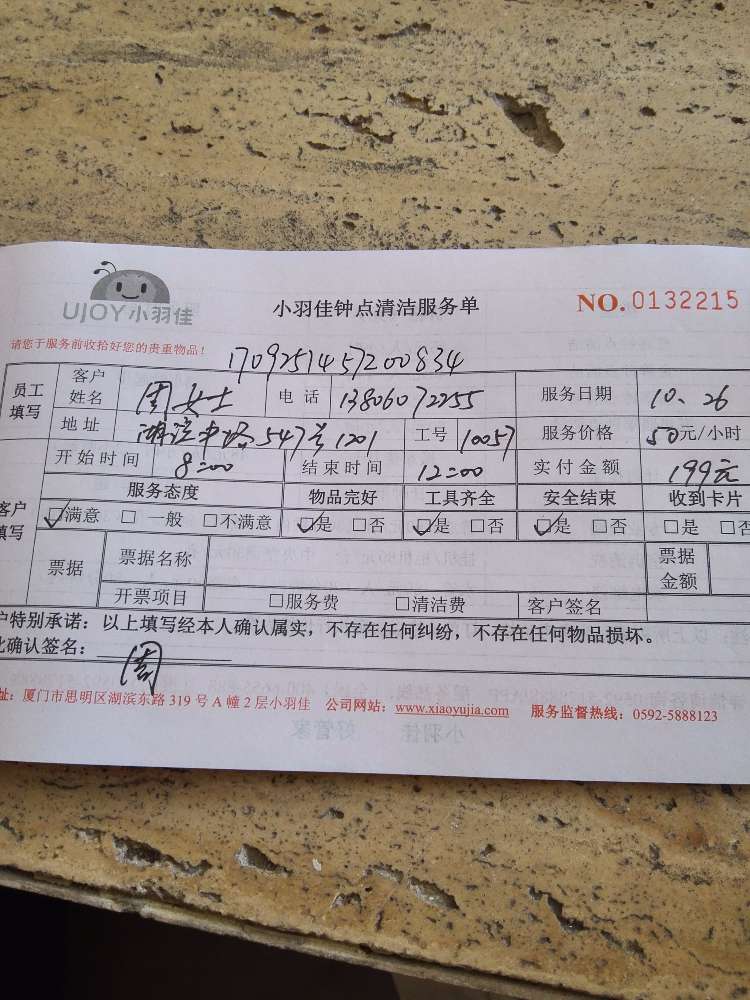 UJOY小羽佳
小羽佳钟点清洁服务单
NO. 0132215
请您于服务前收拾好您的贵重物品!
170925145720 0834
员工填写 客户姓名 周女士 电话 13806072255 服务日期 10.26
地址 湖滨中路547号1201 工号 10057 服务价格 50元/小时
开始时间 8:00 结束时间 12:00 实付金额 199元
客户填写 服务态度 物品完好 工具齐全 安全结束 收到卡片
☑满意 □一般 □不满意 ☑是 □否 ☑是 □否 ☑是 □否 □是 □否
票据 票据名称 票据金额
开票项目 □服务费 □清洁费 客户签名
户特别承诺:以上填写经本人确认属实,不存在任何纠纷,不存在任何物品损坏。
此确认签名: 周
址:厦门市思明区湖滨东路 319 号 A 幢 2 层小羽佳 公司网站:www.xiaoyujia.com 服务监督热线:0592-5888123